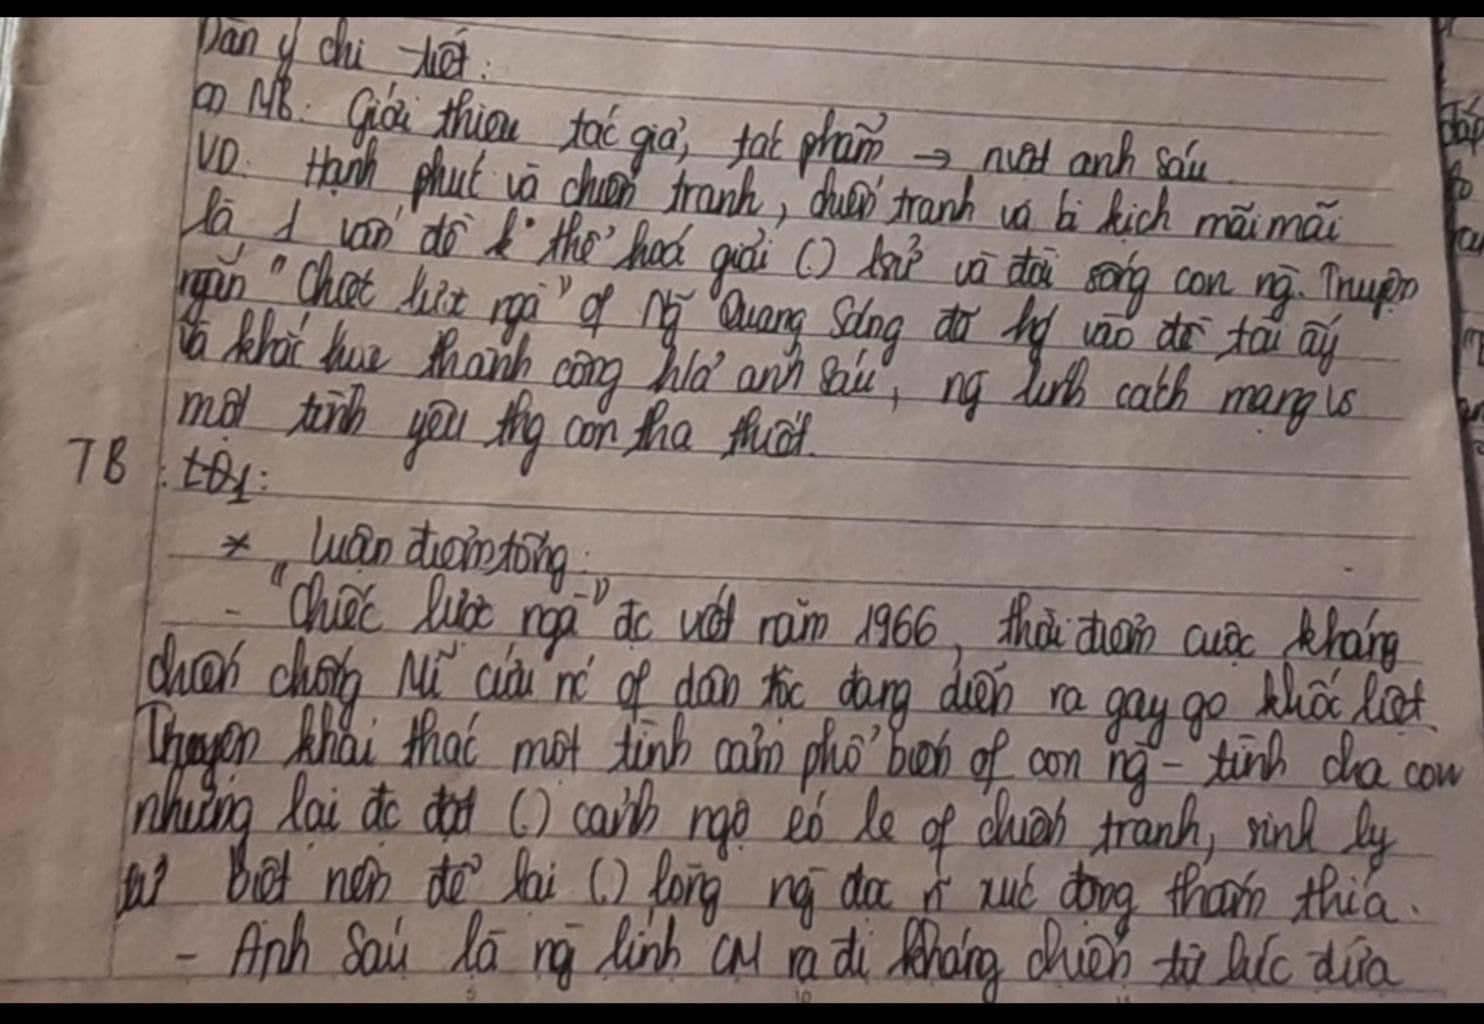 Dàn ý chi tiết:
a) MB: Giới thiệu tác giả, tác phẩm → nvật anh Sáu
VD: Hạnh phúc và chiến tranh, chiến tranh và bi kịch mãi mãi
là 1 vấn đề k thể hoá giải () lsử và đời sống con ng. Truyện
ngắn "Chiếc lược ngà" of Ng Quang Sáng đã hg vào đề tài ấy
và khắc hoạ thành công h/ả anh Sáu, ng lính cách mạng vs
một tình yêu thg con tha thiết.
TB : LĐ1:
* Luận điểm tổng:
- "Chiếc lược ngà" đc viết năm 1966, thời điểm cuộc kháng
chiến chống Mĩ cứu nc of dân tộc đang diễn ra gay go khốc liệt.
Truyện khai thác một tình cảm phổ biến of con ng - tình cha con
nhưng lại đc đặt () cảnh ngộ éo le of chiến tranh, sinh ly
tử biệt nên để lại () lòng ng đọc n xúc động thấm thía.
- Anh Sáu là ng lính CM ra đi kháng chiến từ lúc đứa